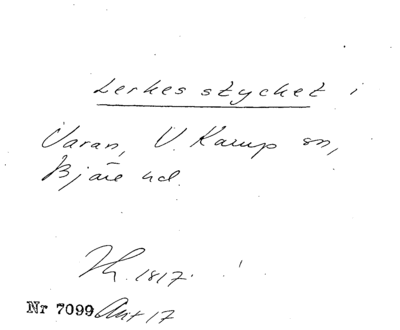 Lerkesstycket i
Varan, V. Karup sn,
Bjäre hd.
Th. 1817.
Nr 7099 Ant 17